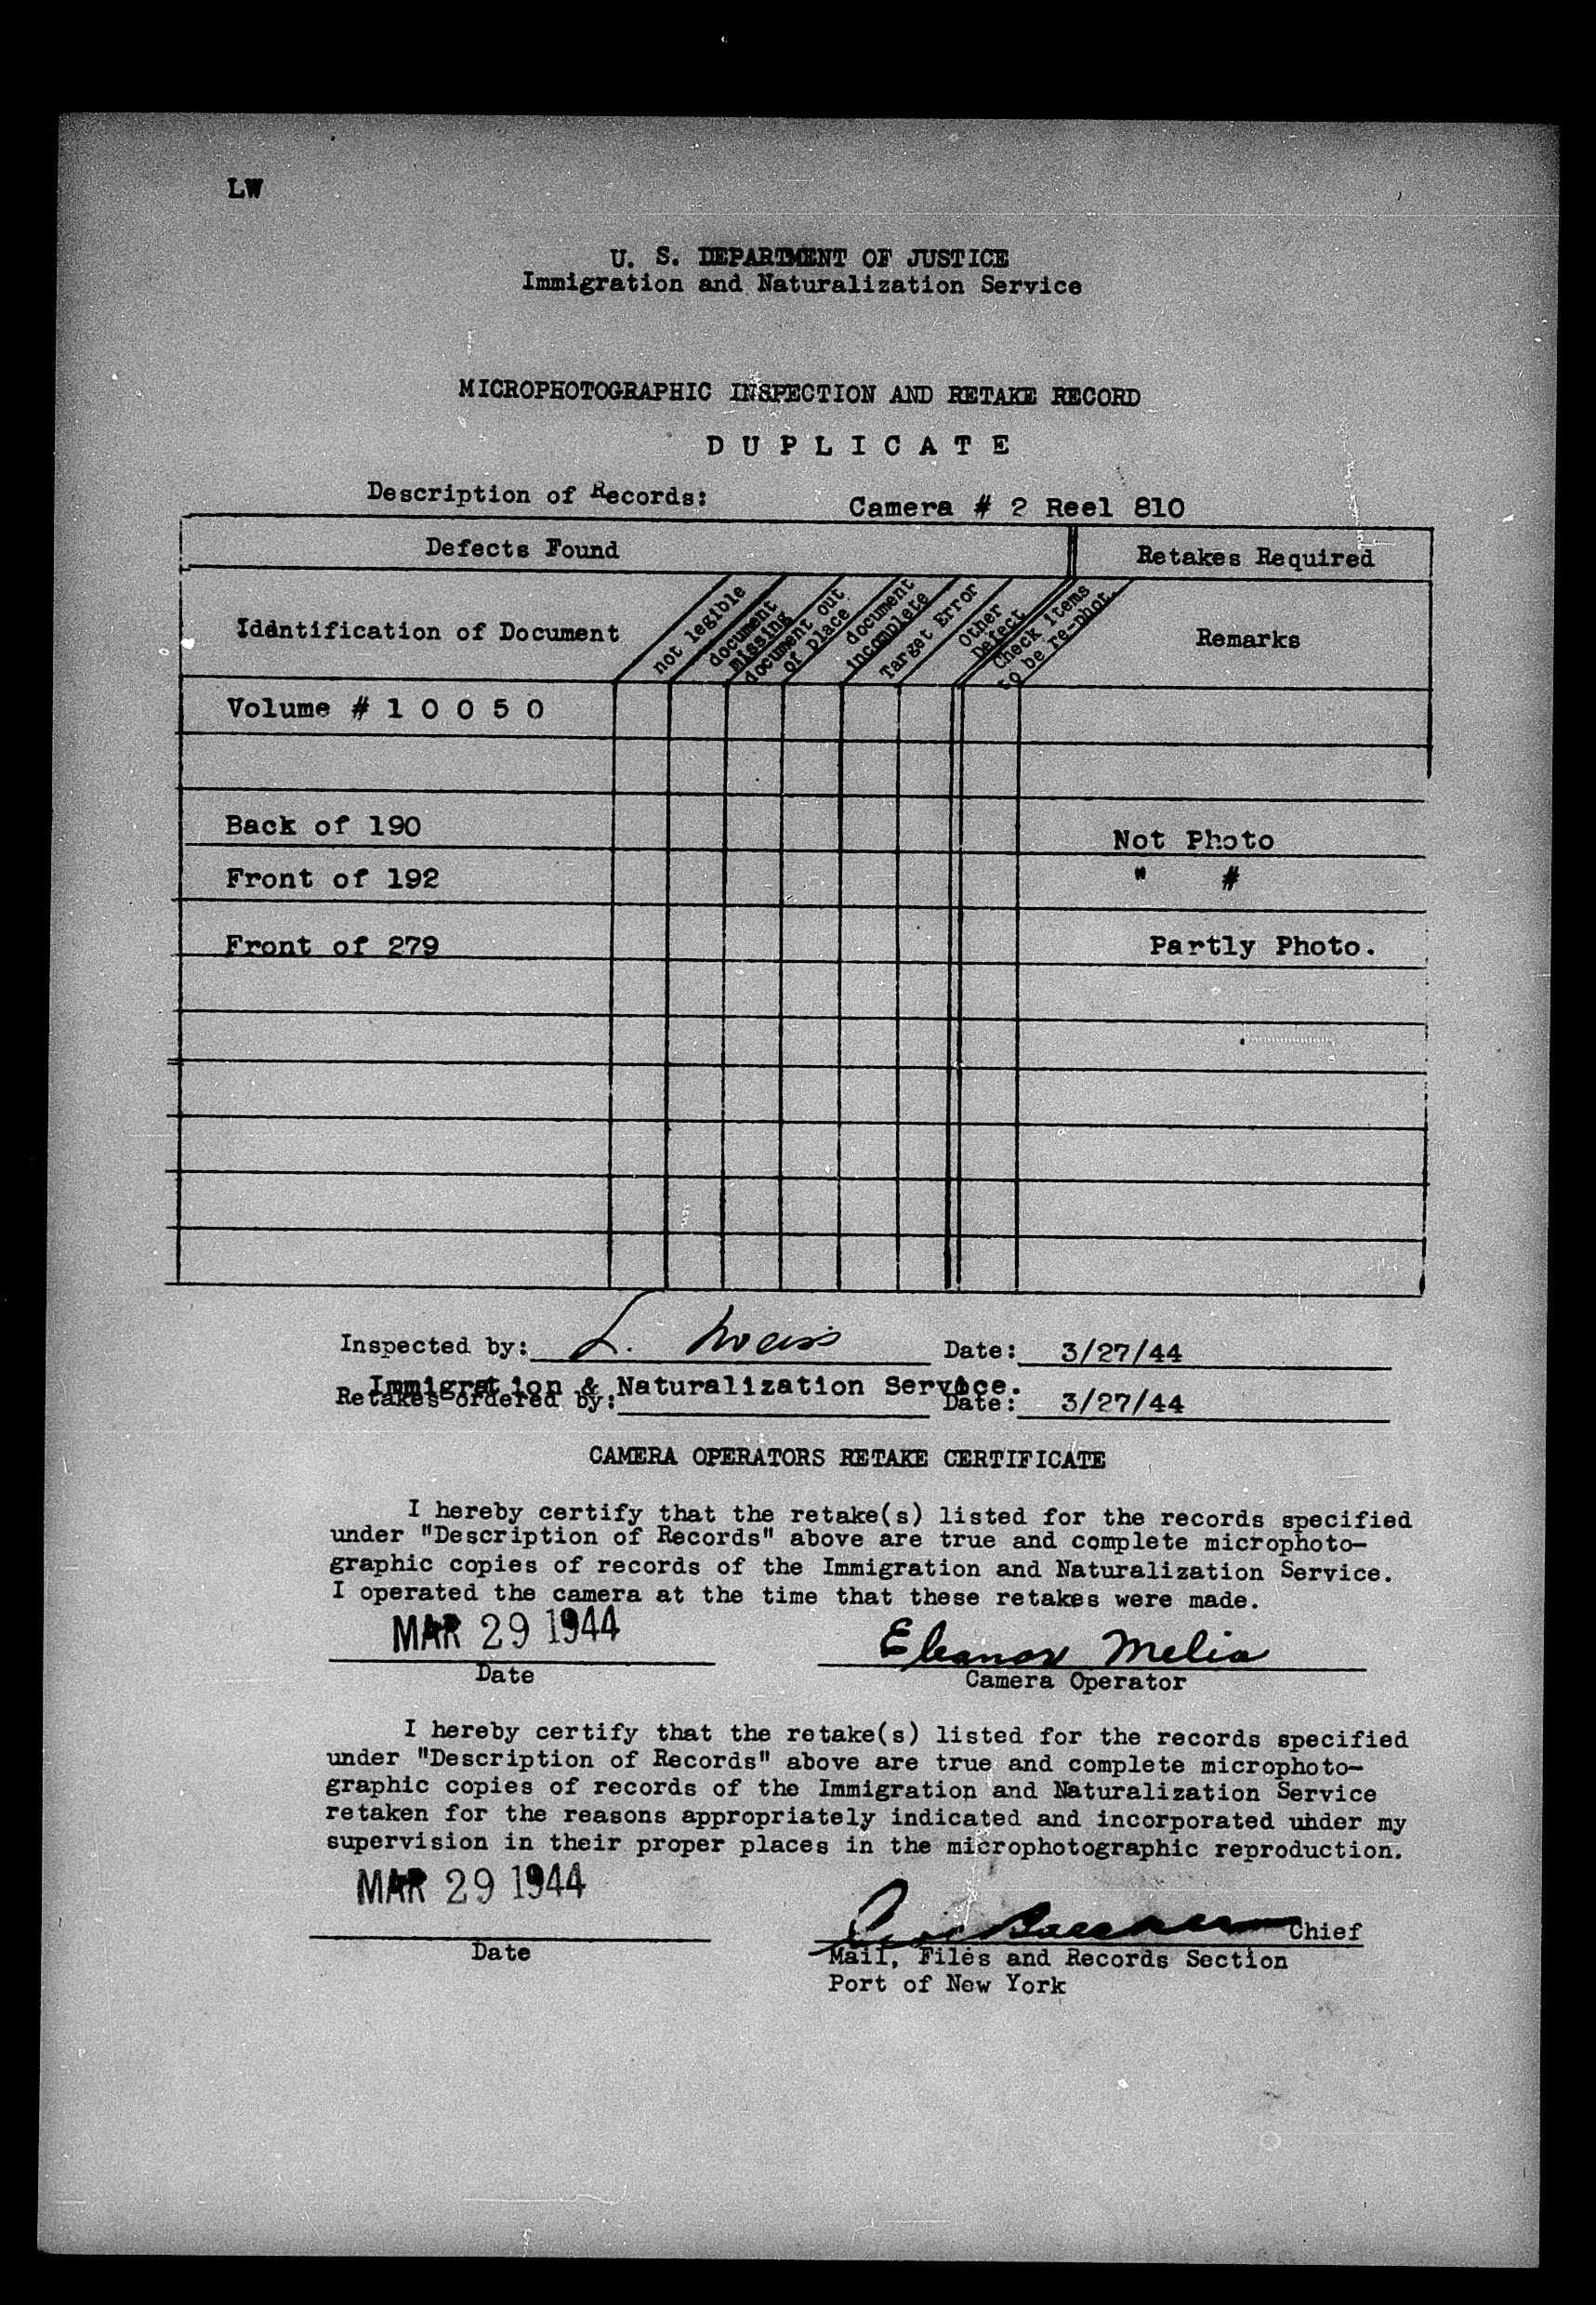 LW
U. S. DEPARTMENT OF JUSTICE
Immigration and Naturalization Service
MICROPHOTOGRAPHIC INSPECTION AND RETAKE RECORD
D U P L I C A T E
Description of Records:
Camera # 2 Reel 810
Defects Found
Retakes Required
Identification of Document
not legible
document
missing
document out
of place
document
incomplete
Target Error
Other
Defect
Check items
to be re-phot.
Remarks
Volume # 1 0 0 5 0
Back of 190
Not Photo
Front of 192
" #
Front of 279
Partly Photo.
Inspected by: L. Weiss Date: 3/27/44
Immigration & Naturalization Service.
Retakes ordered by: Date: 3/27/44
CAMERA OPERATORS RETAKE CERTIFICATE
I hereby certify that the retake(s) listed for the records specified
under "Description of Records" above are true and complete microphoto-
graphic copies of records of the Immigration and Naturalization Service.
I operated the camera at the time that these retakes were made.
MAR 29 1944
Eleanor Melia
Date
Camera Operator
I hereby certify that the retake(s) listed for the records specified
under "Description of Records" above are true and complete microphoto-
graphic copies of records of the Immigration and Naturalization Service
retaken for the reasons appropriately indicated and incorporated under my
supervision in their proper places in the microphotographic reproduction.
MAR 29 1944
Chief
Date
Mail, Files and Records Section
Port of New York